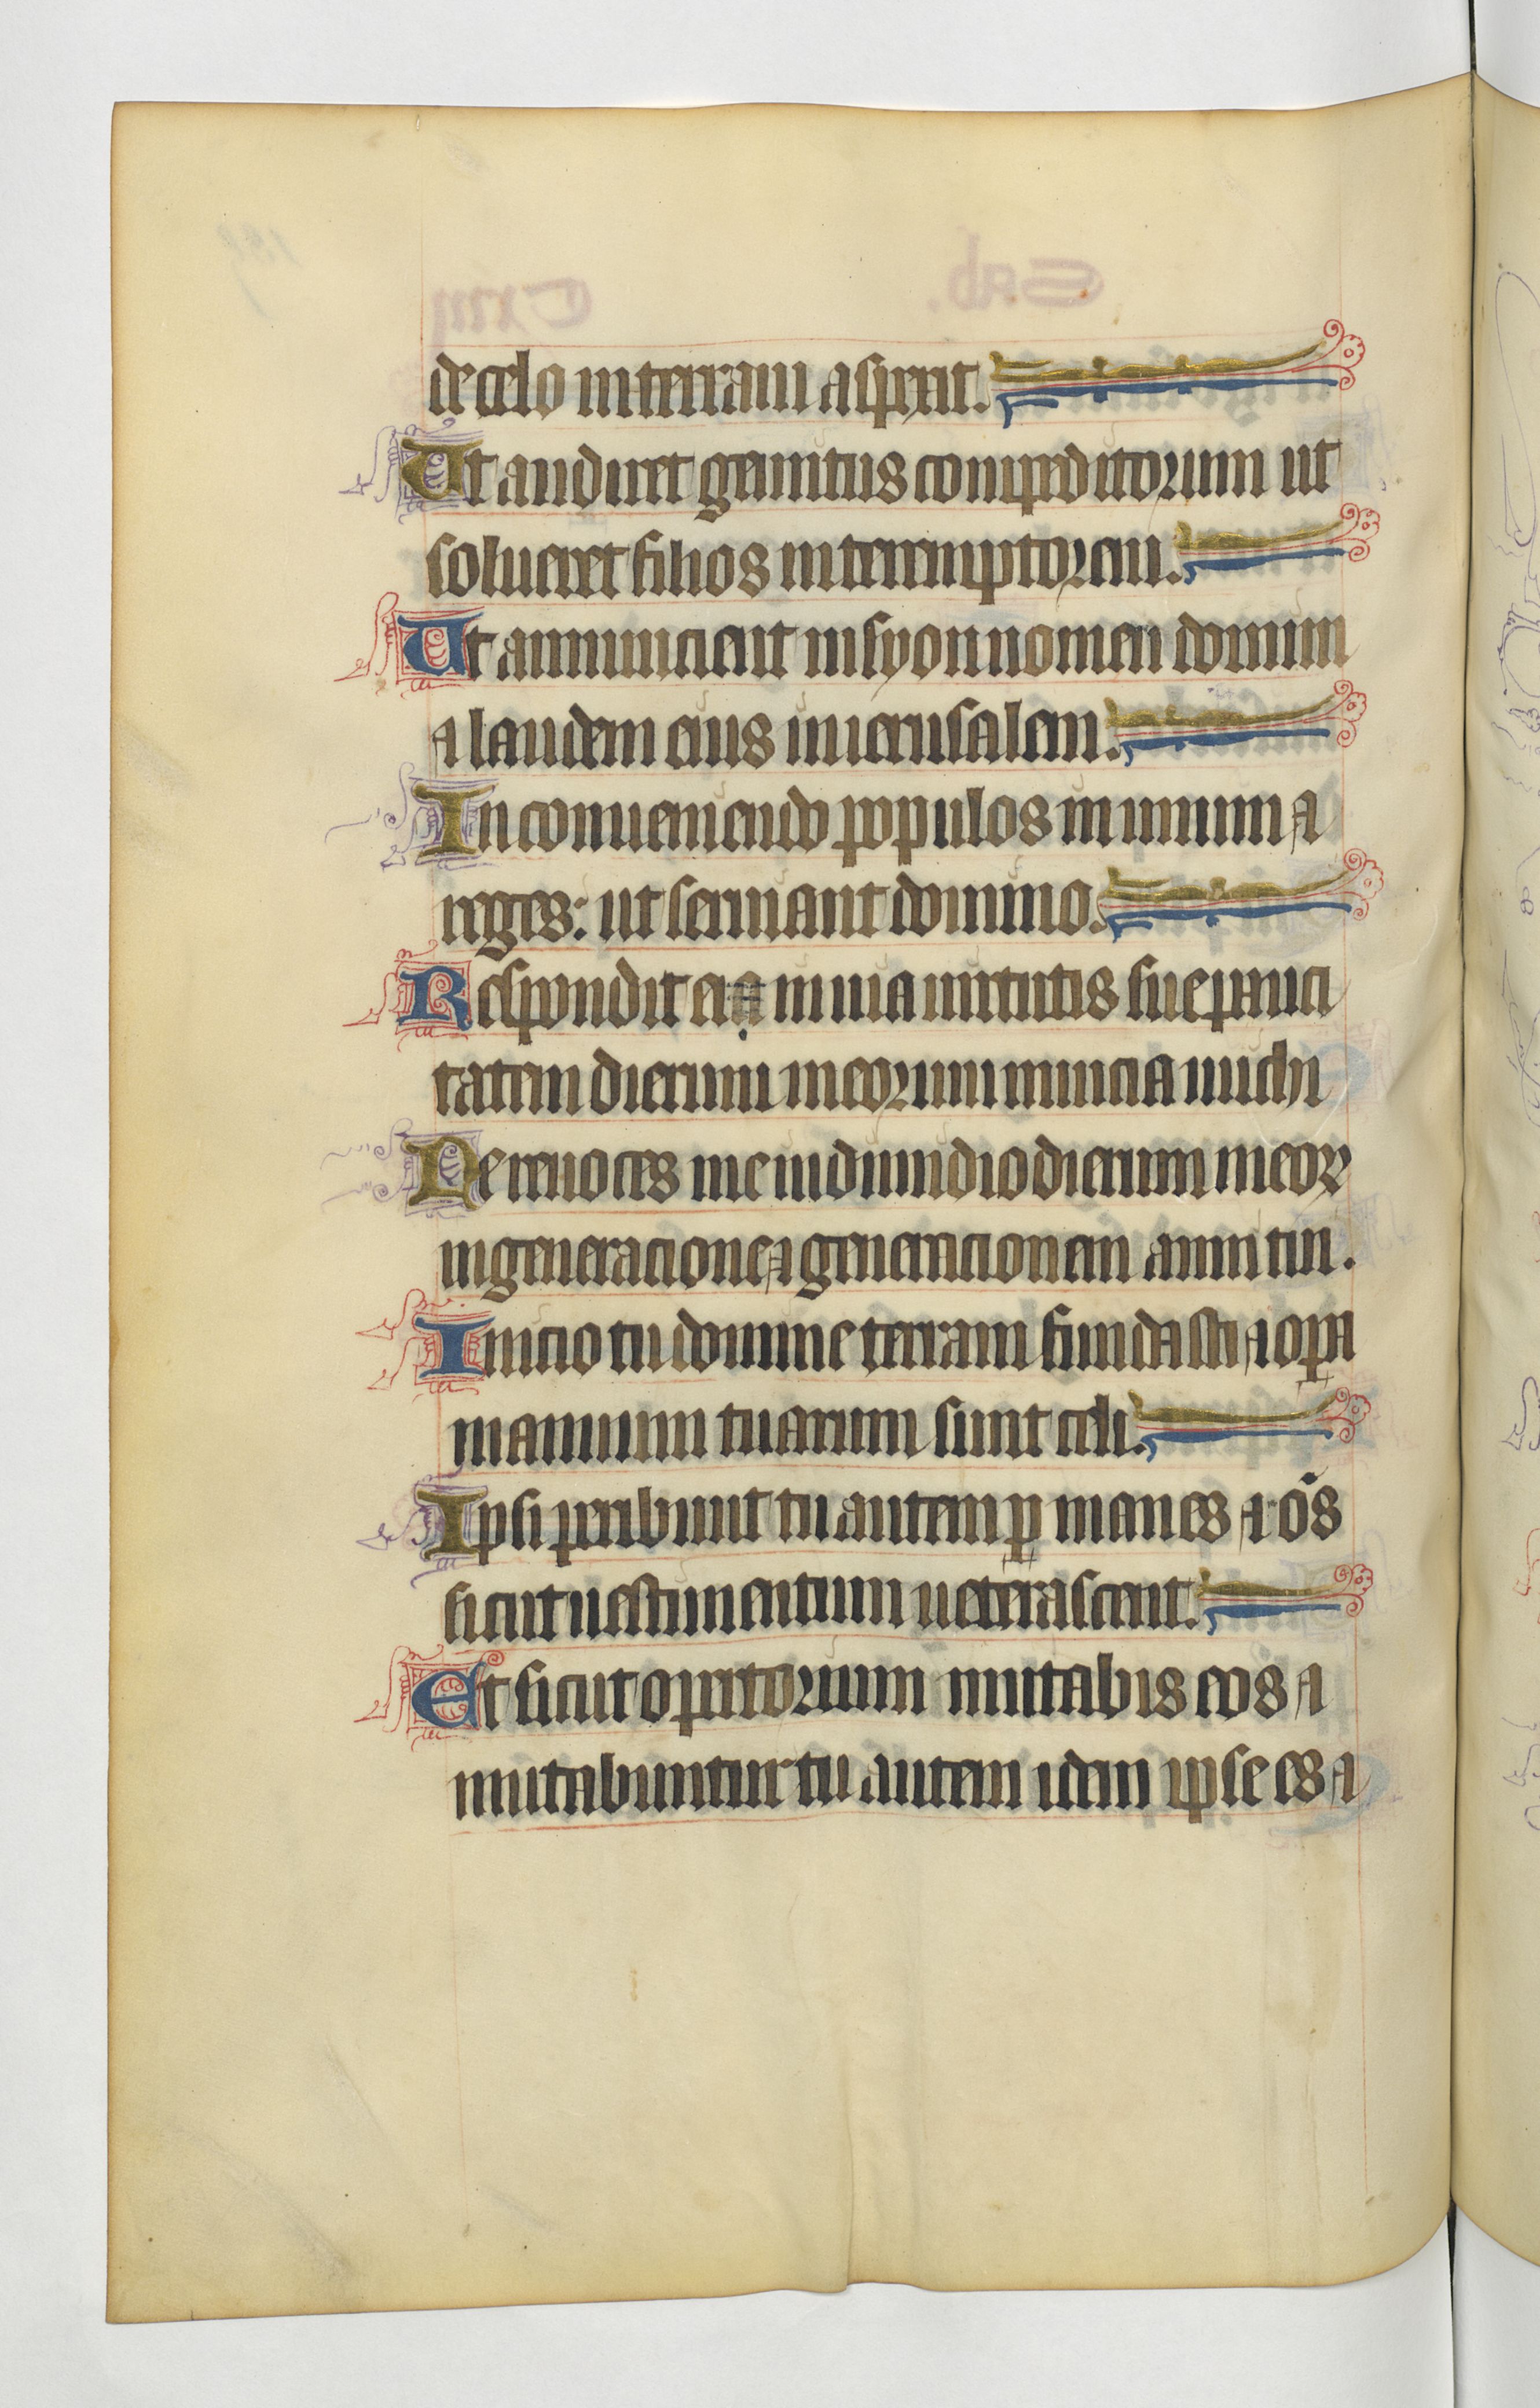 de celo in terram aspexit.
Ut audiret gemitus compeditorum ut
solueret filios interemptorem.
Ut annuncient in syon nomen domini
⁊ laudem eius in ierusalem.
In conueniendo populos in unum ⁊
reges: ut seruiant domino.
Respondit ei in uia uirtutis sue pauci
tatem dierum meorum nuncia michi
Ne reuoces me in dimidio dierum meoꝝ
in generacione ⁊ generacionem anni tui.
Inicio tu domine terram fundasti ⁊ oꝑa
manuum tuarum sunt celi.
Ipsi peribunt tu autem ꝑmanes ⁊ oēs
sicut uestimentum ueterascent.
Et sicut opertorium mutabis eos ⁊
mutabuntur tu autem idem ipse es ⁊